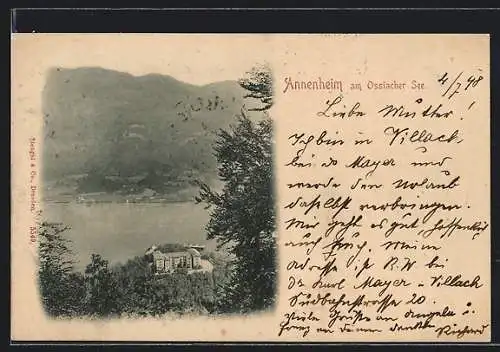 Annenheim am Ossiacher See.
4/7 98
Liebe Mutter!
Ich bin in Villach,
bei Mayer und
werde den Urlaub
daselbst verbringen.
Mir geht es gut hoffentlich
auch Euch. Meine
Adresse ist R.W bei
Karl Mayer - Villach
Südbahnstrasse 20.
Viele Grüße an Angela u.
an denen
Richard
Stengel & Co., Dresden. 5549.